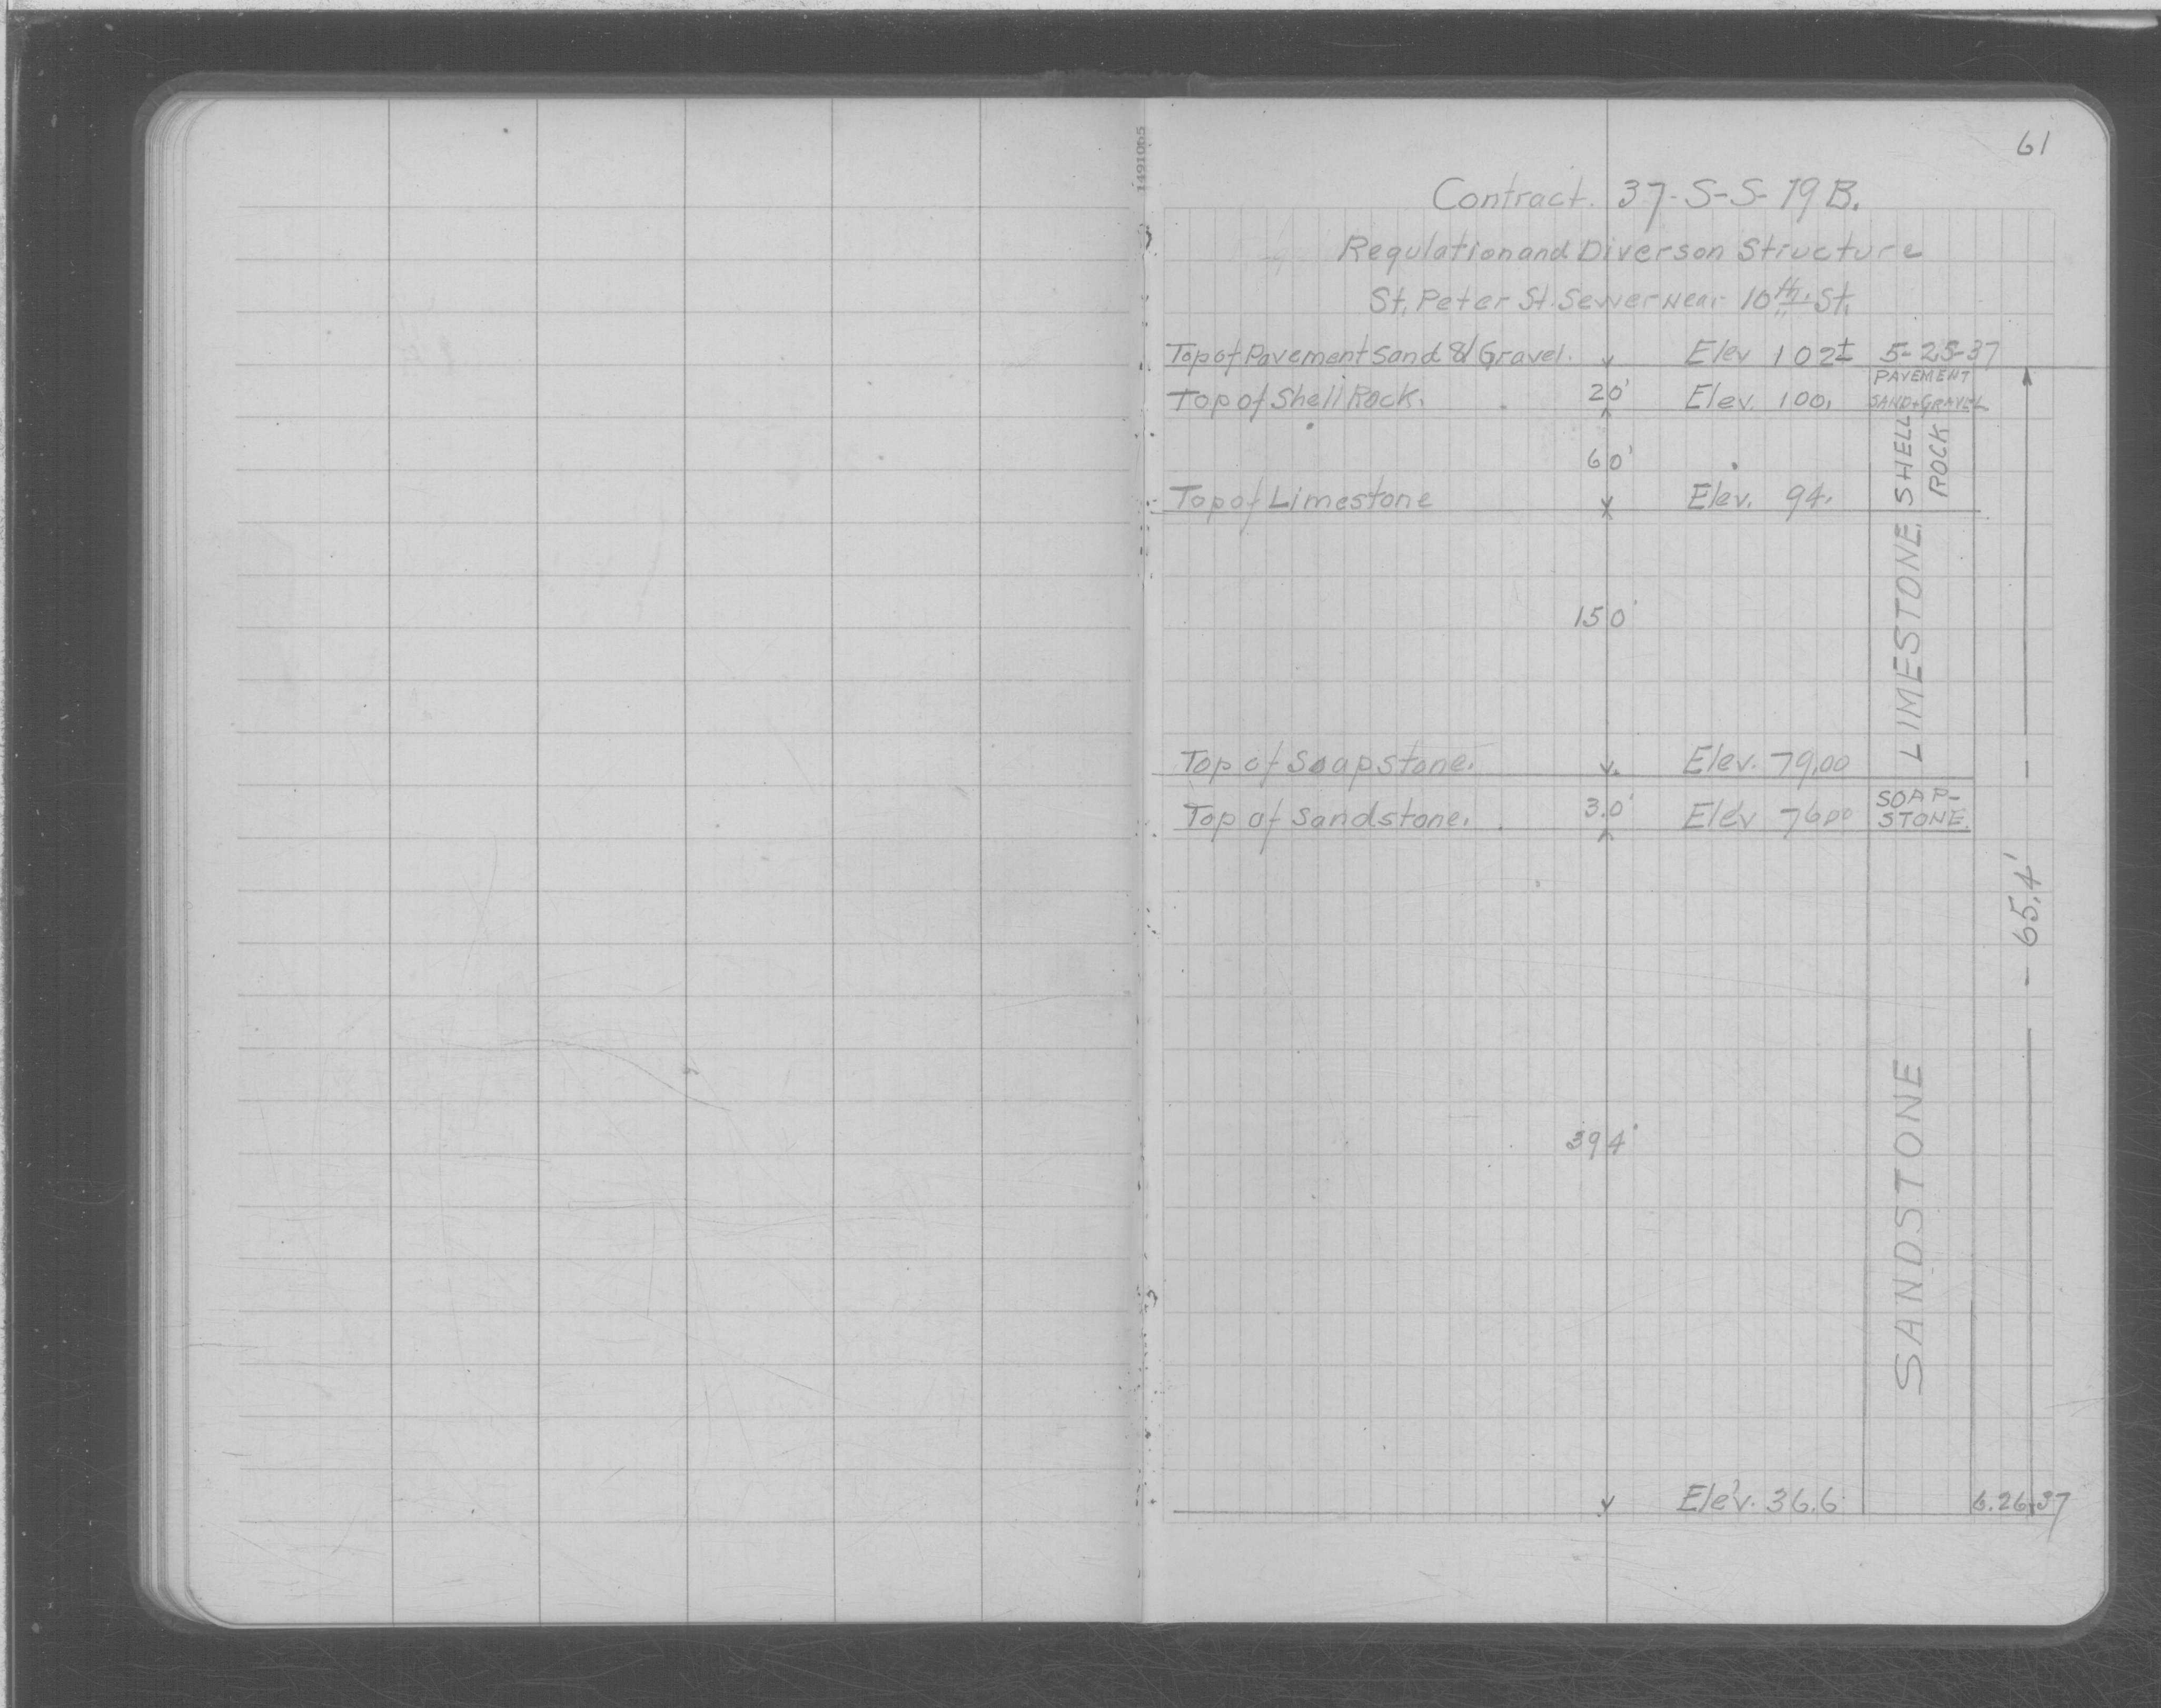 1491065
61
Contract. 37-S-S-19B.
Regulation and Diverson Structure
St. Peter St. Sewer Near 10th. St.
Top of Pavement Sand & Gravel. Elev 102± 5-25-37
Top of Shell Rock. 20' Elev. 100. PAVEMENT
SAND+GRAVEL
60'
SHELL
ROCK
Top of Limestone Elev. 94.
150'
LIMESTONE
Top of Soapstone. Elev. 79.00
Top of Sandstone. 3.0' Elev 76.00 SOAP-
STONE.
65.4'
394'
SANDSTONE
Elev. 36.6 6.26.37